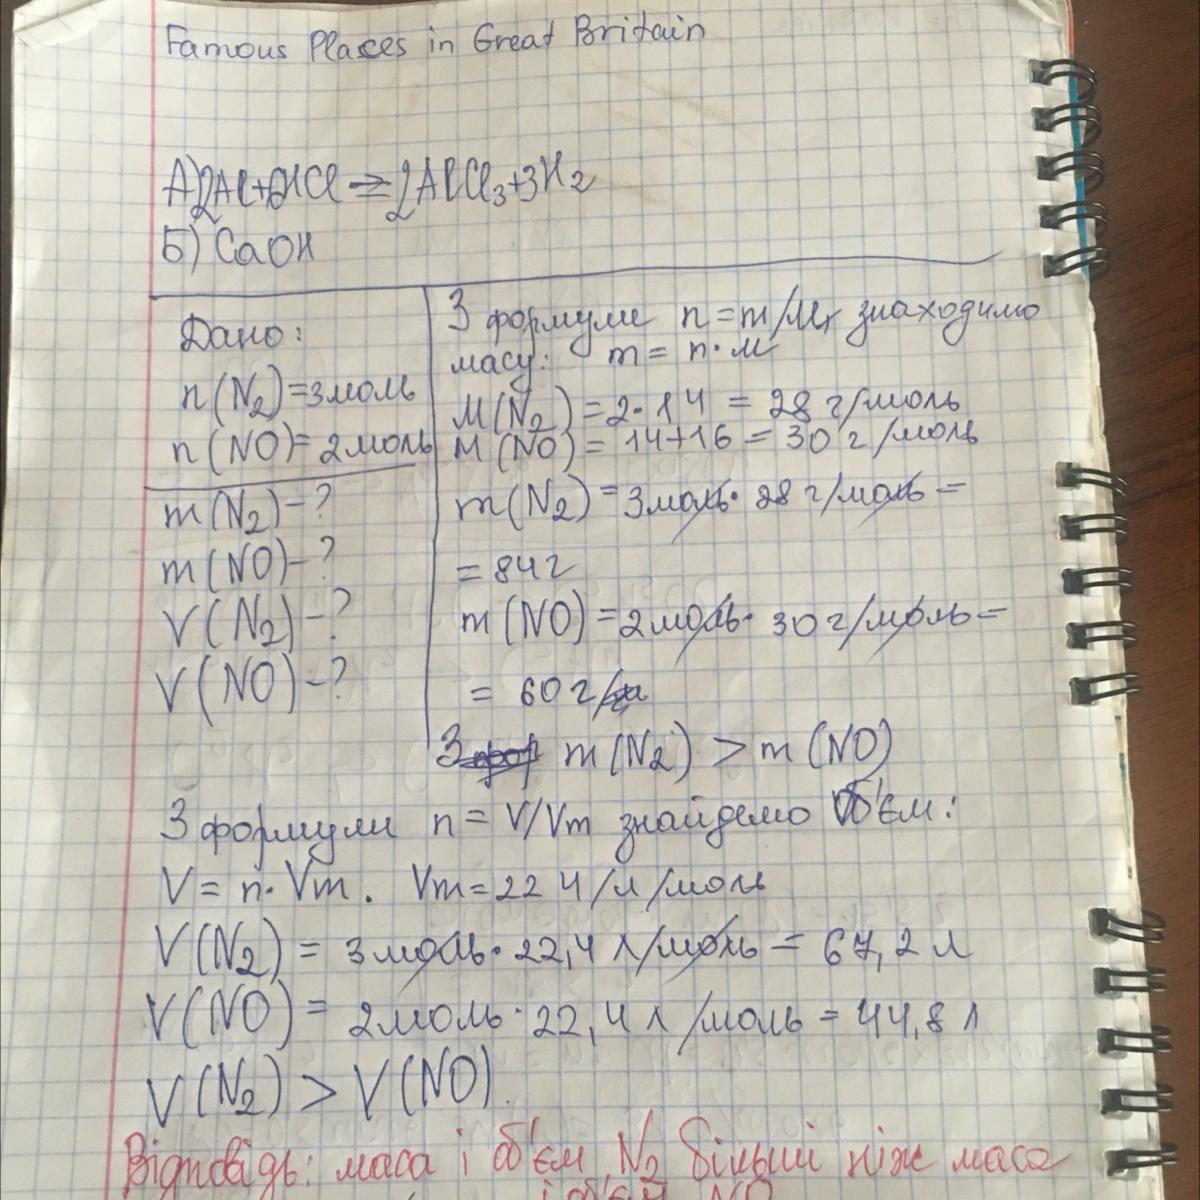 Famous Places in Great Britain
А)2Al+HCl⇒2AlCl₃+3H₂
Б) CaOH
Дано:
n(N₂)=3моль
n(NO)=2моль
m(N₂)-?
m(NO)-?
V(N₂)-?
V(NO)-?
З формули n=m/M, знаходимо
масу: m= n·м
M(N₂)=2·14 = 28 г/моль
M(NO)=14+16=30 г/моль
m(N₂)=3моль· 28 г/моль=
=84г
m(NO)=2моль· 30 г/моль=
= 60 г/
З m(N₂) > m(NO)
З формули n= V/Vm знайдемо Об'єм:
V= n·Vm. Vm=22 4/л/моль
V(N₂)= 3моль·22,4 л/моль= 67,2 л
V(NO)= 2моль·22,4 л/моль=44,8 л
V(N₂) > V(NO).
Відповідь: маса і об'єм N₂ більші ніж маса
і об'єм NO